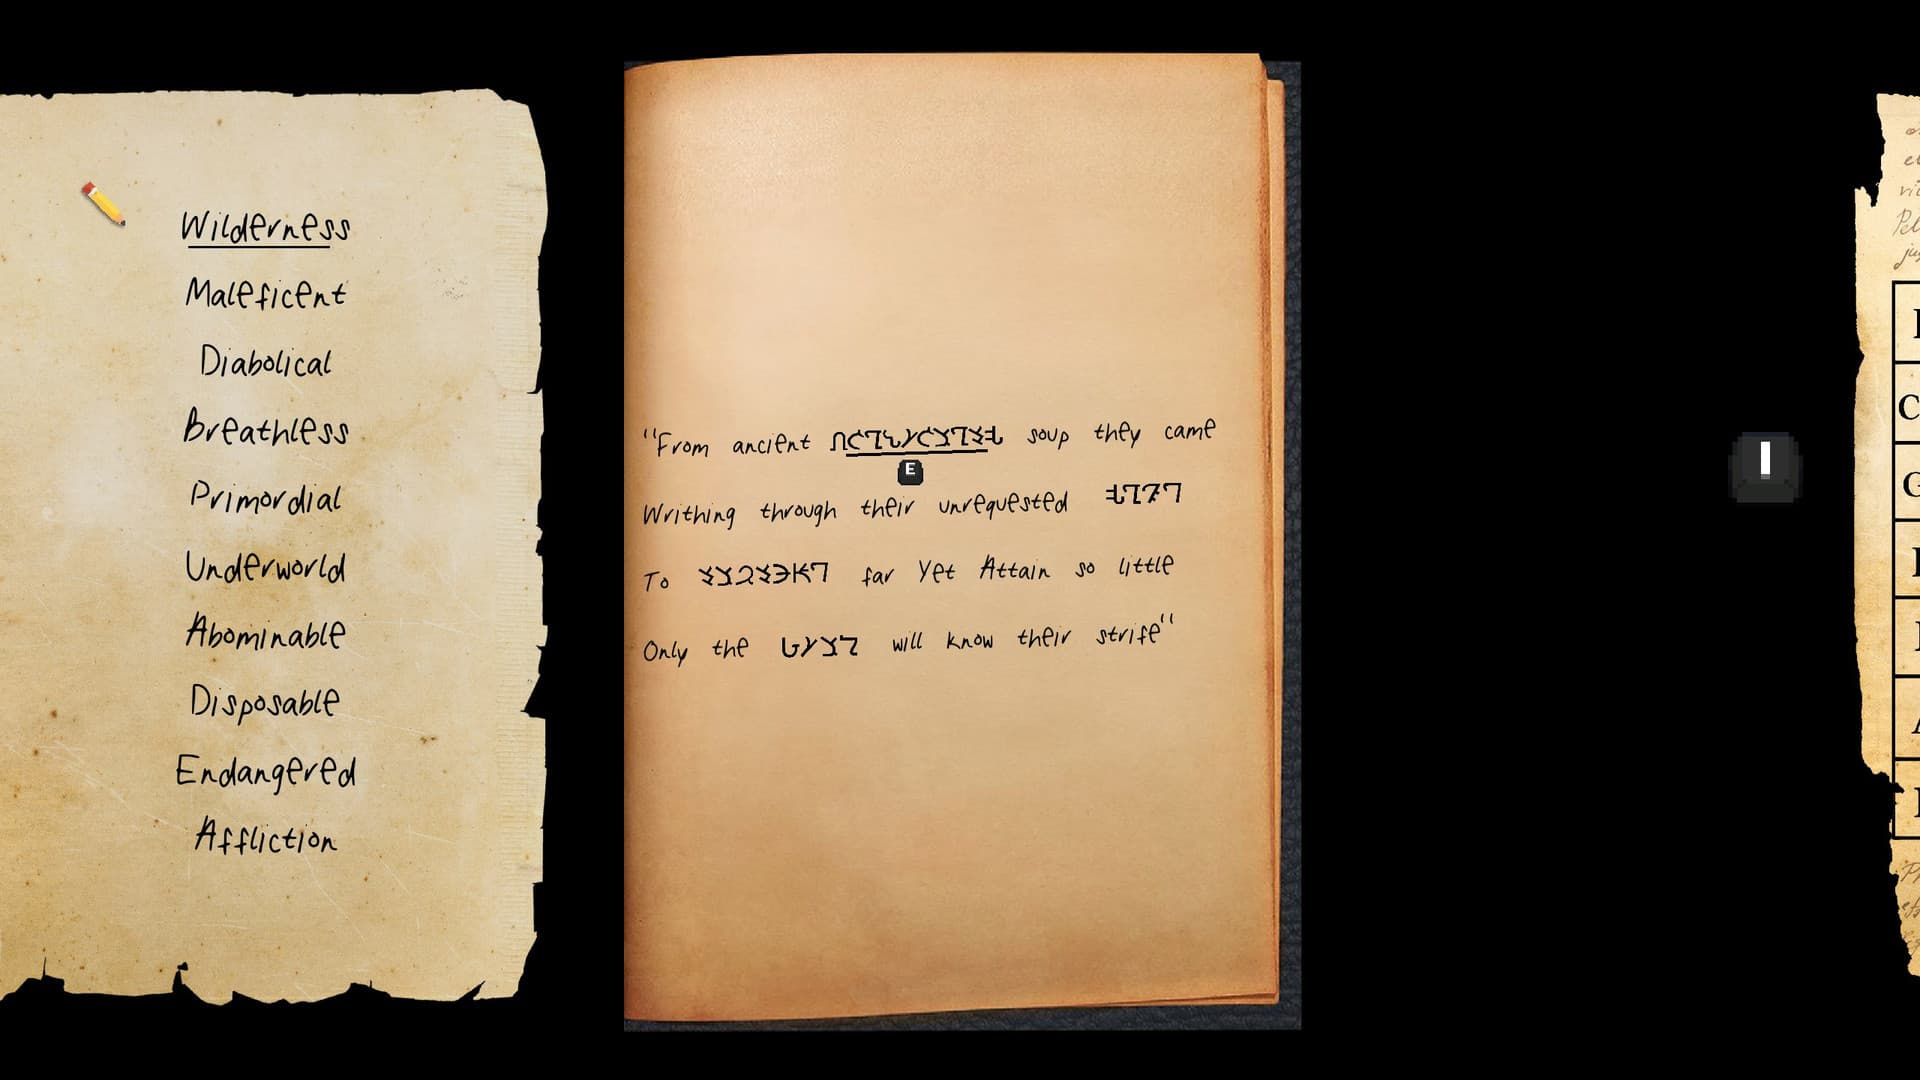 Wilderness
Maleficent
Diabolical
Breathless
Primordial
Underworld
Abominable
Disposable
Endangered
Affliction
"From ancient soup they came
E
Writhing through their unrequested
To far Yet Attain so little
Only the will know their strife"
I